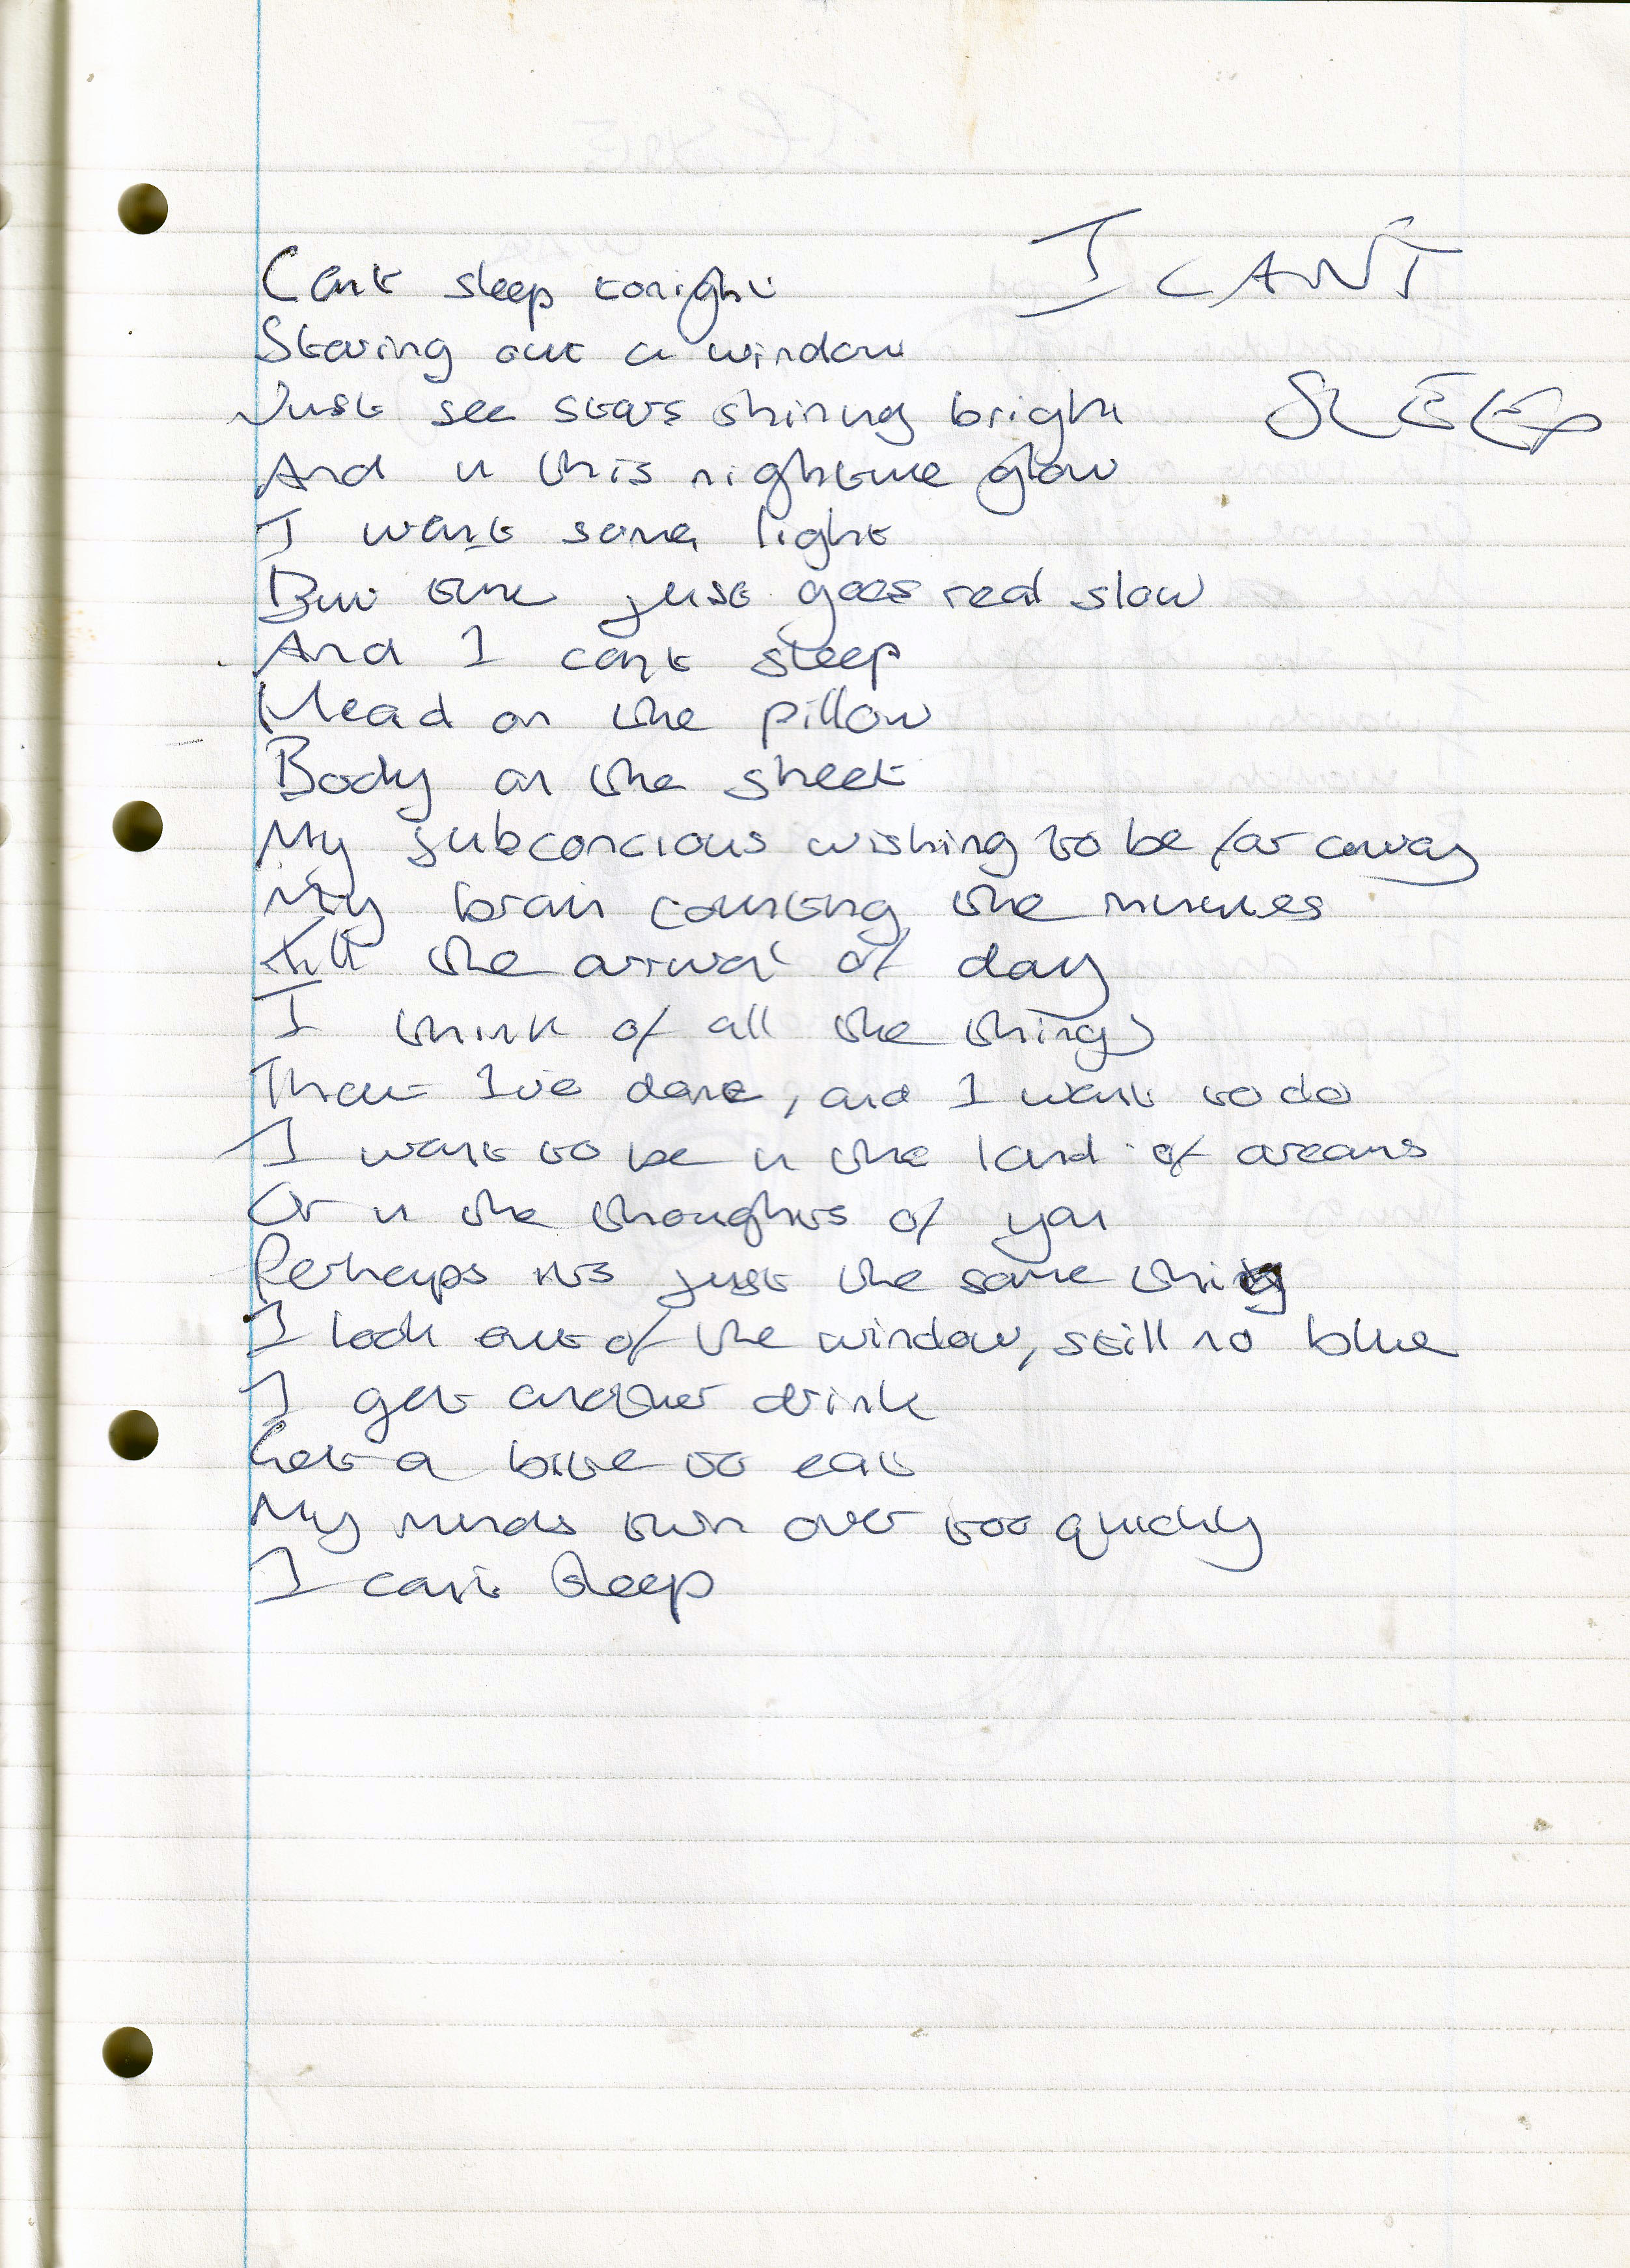 I CAN'T
SLEEP
Cant sleep tonight
Staring out a window
Just see stars shining bright
And in this nightime glow
I want some light
But time just goes real slow
And I cant sleep
Head on the pillow
Body on the sheet
My subconcious wishing to be far away
My brain counting the minutes
till the arrival of day
I think of all the things
That I've done, and I want to do
I want to be in the land of dreams
Or in the thoughts of you
Perhaps its just the same thing
I look out of the window, still no blue
I get another drink
Get a bite to eat
My minds turn over too quickly
I cant sleep